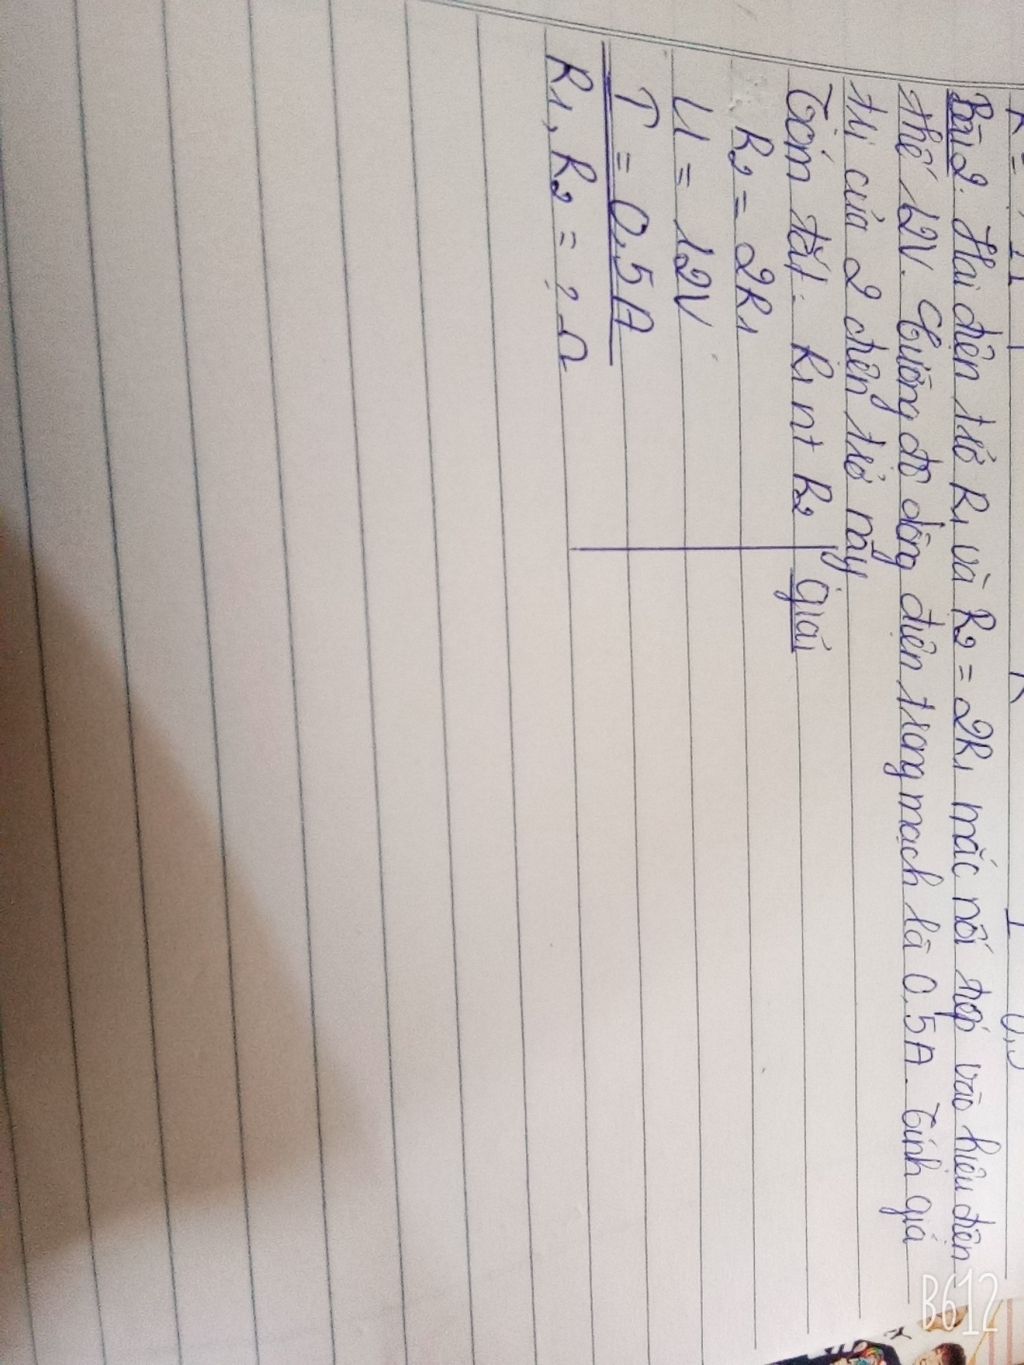 Bài 2. Hai điện trở R1 và R2 = 2R1 mắc nối tiếp vào hiệu điện
thế 12V. Cường độ dòng điện trong mạch là 0,5A. Tính giá
trị của 2 điện trở này
Tóm tắt: R1 nt R2
giải
R2 = 2R1
U = 12V
I = 0,5A
R1, R2 = ? Ω
B612